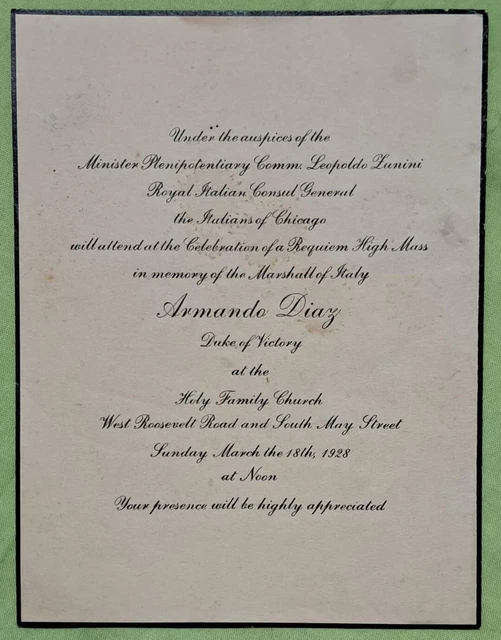 Under the auspices of the
Minister Plenipotentiary Comm. Leopoldo Zunini
Royal Italian Consul General
the Italians of Chicago
will attend at the Celebration of a Requiem High Mass
in memory of the Marshall of Italy
Armando Diaz
Duke of Victory
at the
Holy Family Church
West Roosevelt Road and South May Street
Sunday March the 18th, 1928
at Noon
Your presence will be highly appreciated